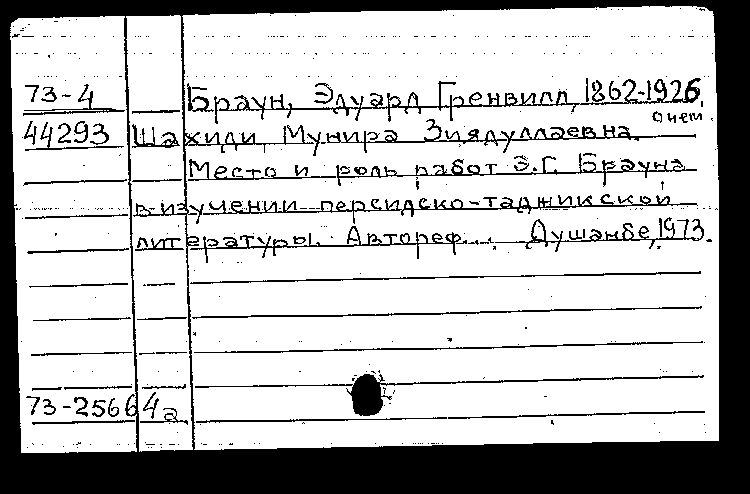 73-4 Браун, Эдуард Гренвилл, 1862-1926, о нем.
44293 Шахиди, Мунира Зиядуллаевна.
Место и роль работ Э.Г. Брауна
в изучении персидско-таджикской
литературы. Автореф... Душанбе, 1973.
73-25664а